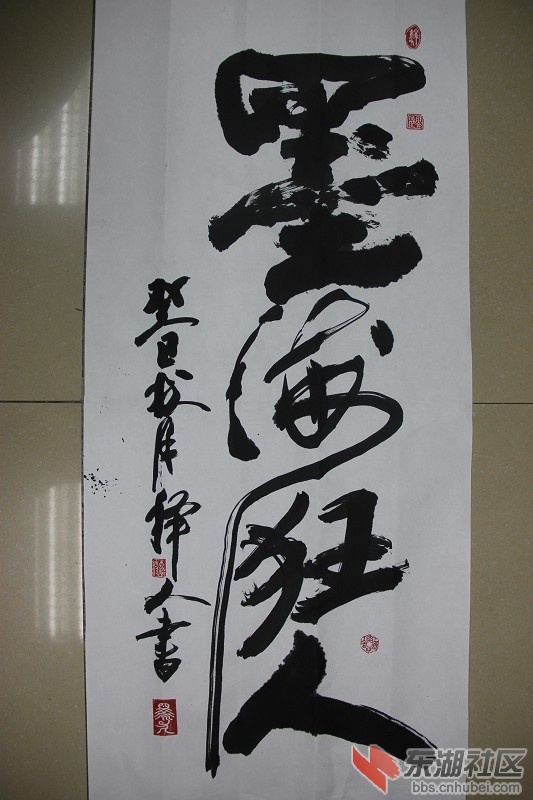 墨海狂人
癸巳秋月
人書
东湖社区
bbs.cnhubei.com